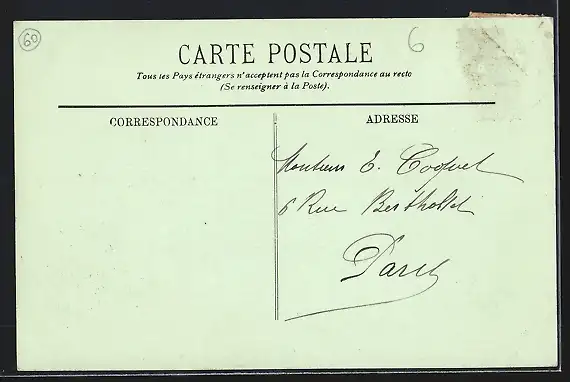 60
6
CARTE POSTALE
Tous les Pays étrangers n'acceptent pas la Correspondance au recto
(Se renseigner à la Poste).
CORRESPONDANCE
ADRESSE
Monsieur E. Coquel
6 Rue Berthollet
Paris